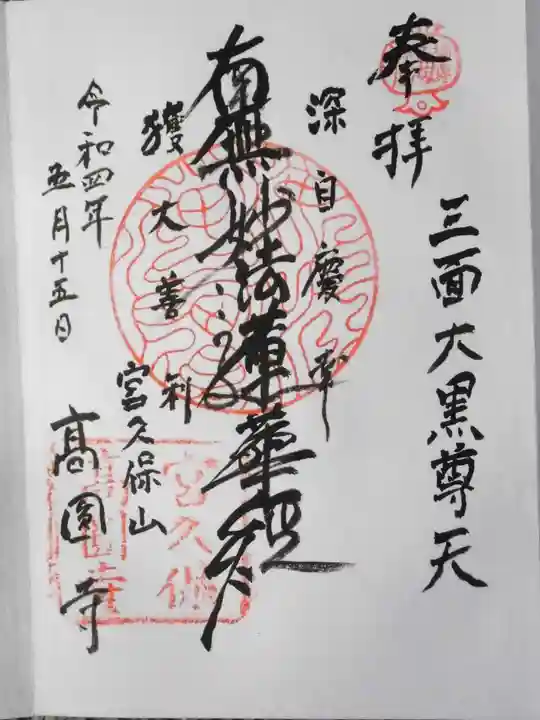 奉拝
三面大黒尊天
深自慶幸
南無妙法蓮華経
獲大善利
令和四年
五月十五日
宮久保山
高圓寺
宮久保